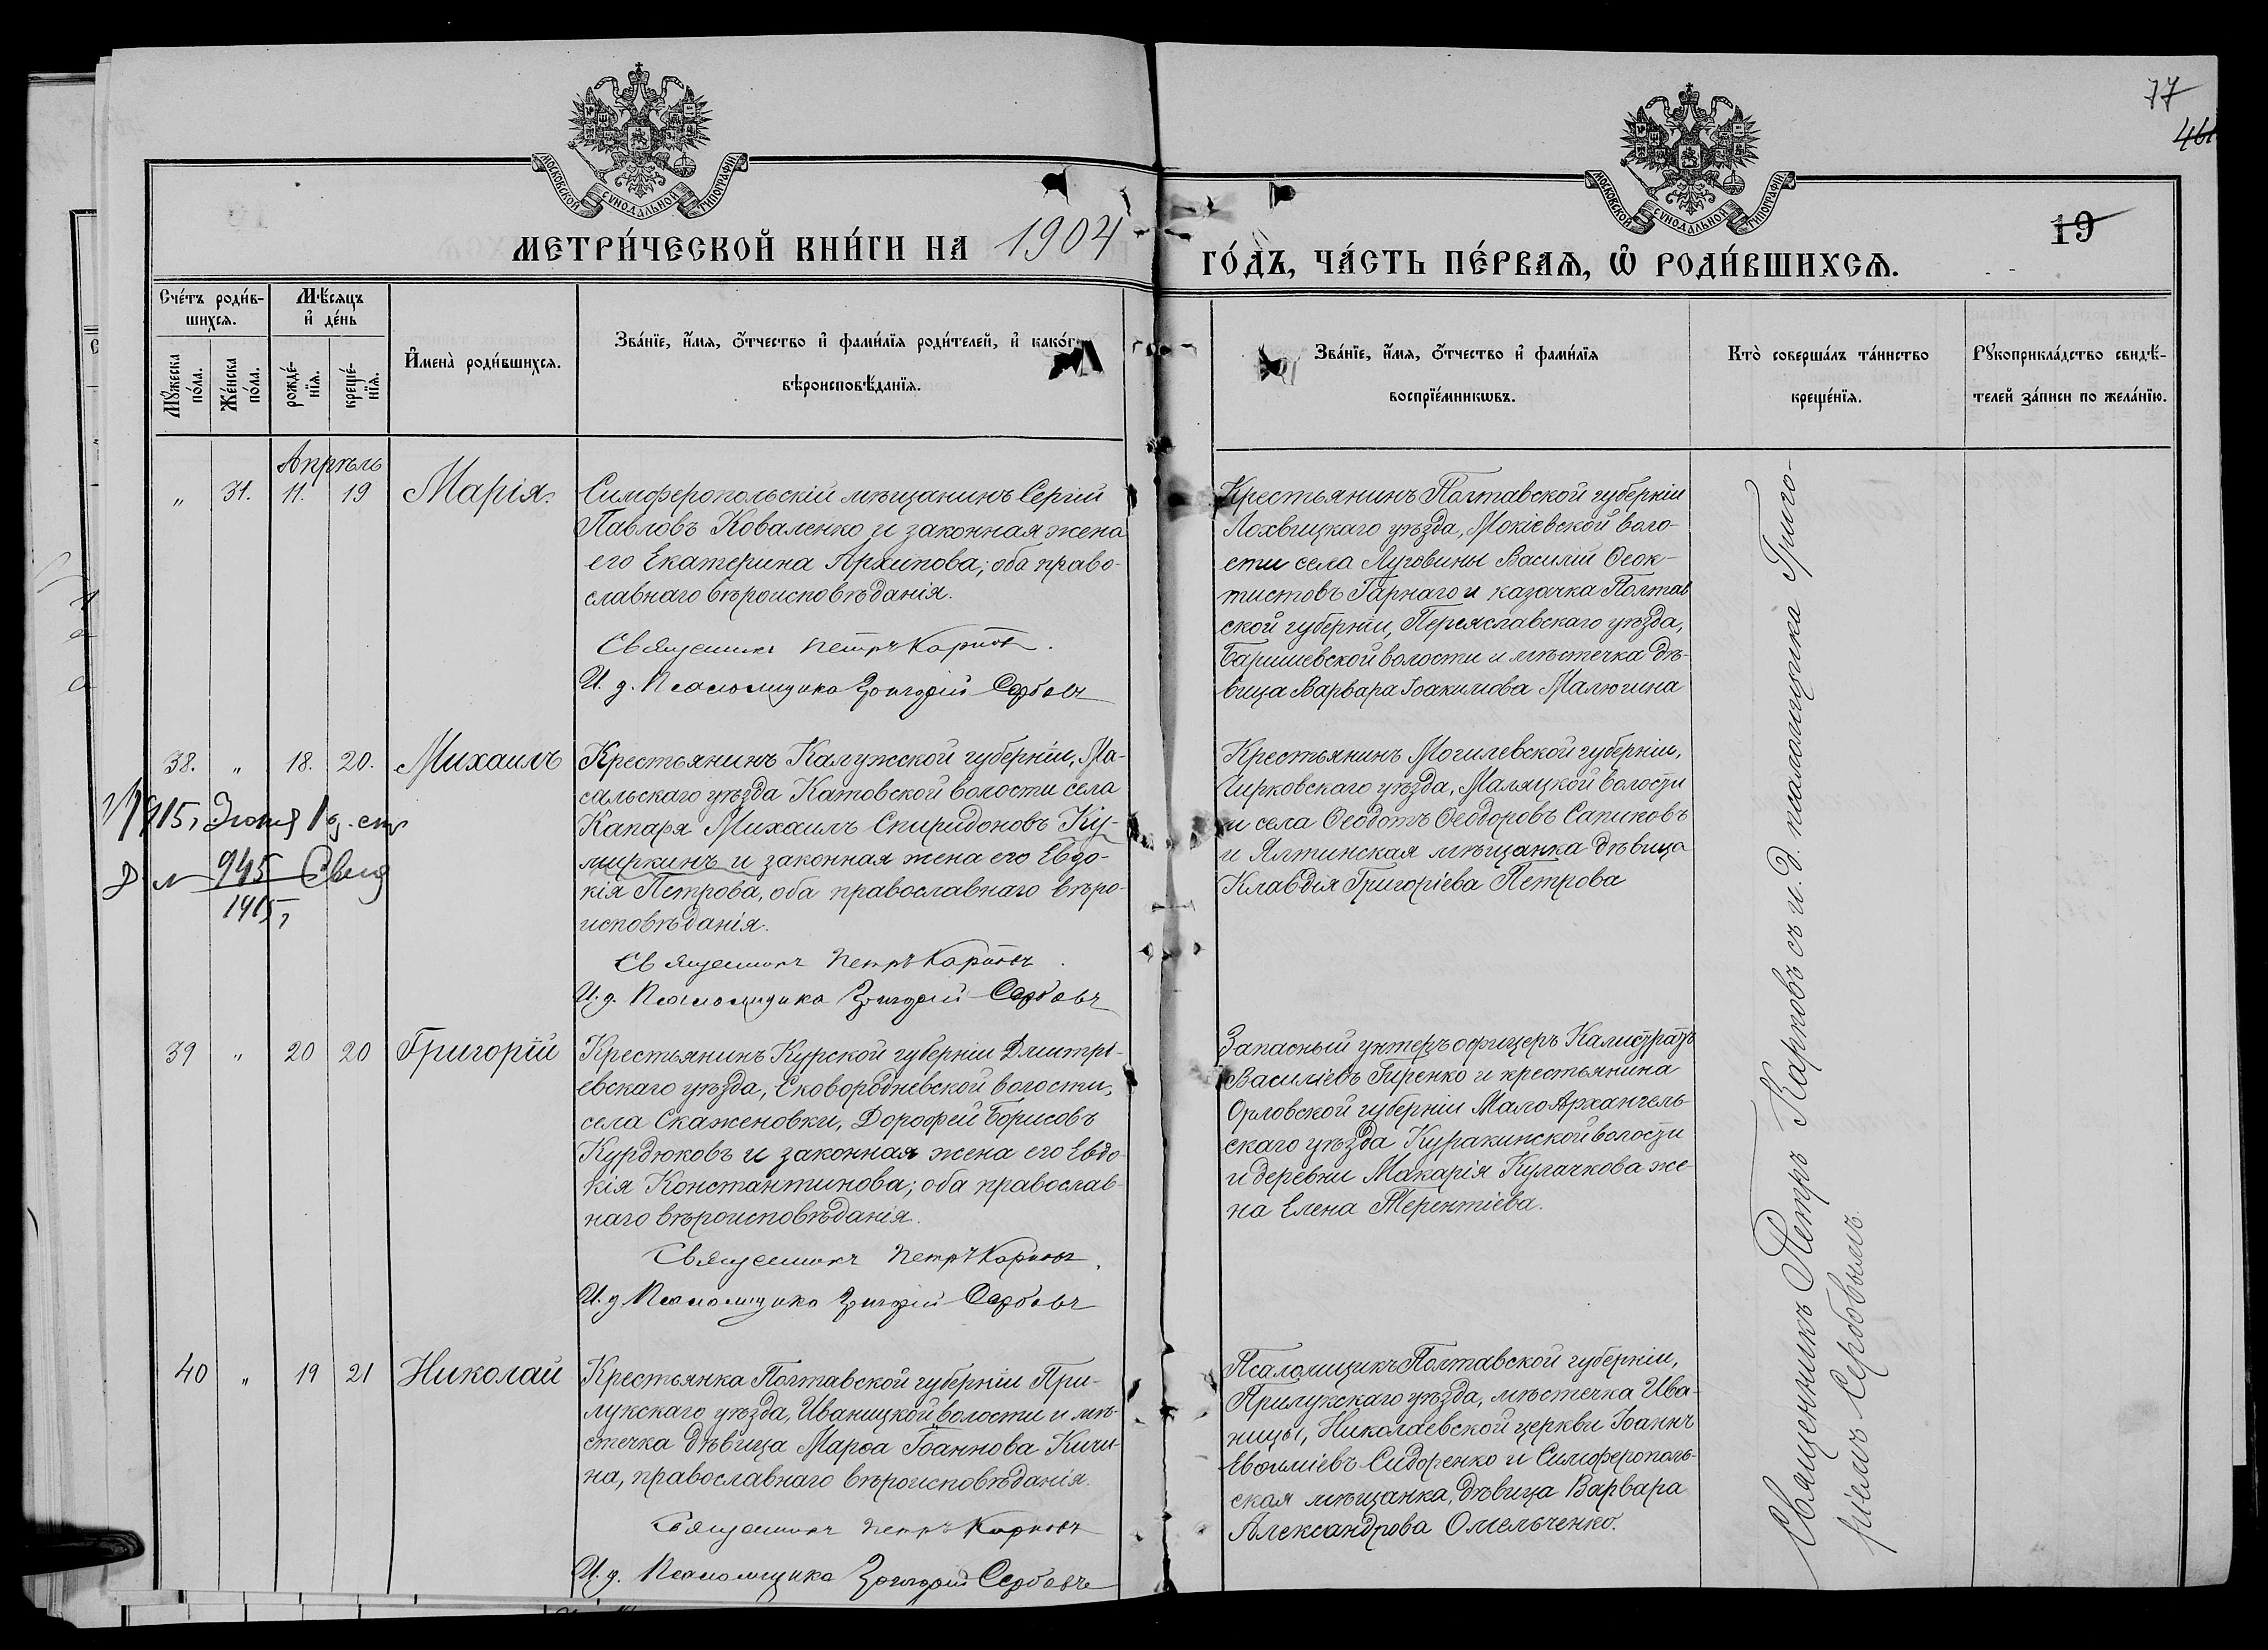 77
461
19
МОСКОВСКОЙ СѴНОДАЛЬНОЙ ТИПОГРАФІИ
МОСКОВСКОЙ СѴНОДАЛЬНОЙ ТИПОГРАФІИ
МЕТРИ́ЧЕСКОЙ КНИ́ГИ НА 1904
ГО́ДЪ, ЧА́СТЬ ПЕ́РВАѦ, Ѡ РОДИ́ВШИХСѦ.
Сче́тъ роди́в-
шихсѧ.
Мꙋ́жеска
по́ла.
Же́нска
по́ла.
Мѣ́сяцъ
и҆ де́нь
рожде́-
нїѧ.
креще́-
нїѧ.
И҆мена̀ роди́вшихсѧ.
Зва́нїе, и҆́мѧ, ѻ҆́тчество и҆ фами́лїѧ роди́телей, и҆ како́гѡ
вѣроисповѣ́данїѧ.
Зва́нїе, и҆́мѧ, ѻ҆́тчество и҆ фами́лїѧ
воспрїе́мникѡвъ.
Кто̀ соверша́лъ та́инство
креще́нїѧ.
Рꙋкоприкла́дство свидѣ́-
телей за́писи по жела́нїю.
Апрѣль
„ 31. 11. 19 Марія.
Симферопольскій мѣщанинъ Сергій
Павловъ Коваленко и законная жена
его Екатерина Архипова; оба право-
славнаго вѣроисповѣданія.
Священникъ Петръ Карповъ.
И. д. Псаломщика Григорій Сербовъ
Крестьянинъ Полтавской губерніи
Лохвицкаго уѣзда, Мокіевской воло-
сти села Луговины Василій Ѳеок-
тистовъ Гарнаго и казачка Полтав
ской губерніи, Переяславскаго уѣзда,
Баришевской волости и мѣстечка дѣ-
вица Варвара Іоакимова Малюгина
38. „ 18. 20. Михаилъ
Крестьянинъ Калужской губерніи, Мо-
сальскаго уѣзда Катовской волости села
Капаря Михаилъ Спиридоновъ Ку-
миркинъ и законная жена его Евдо-
кія Петрова, оба православнаго вѣро-
исповѣданія.
Священникъ Петръ Карповъ.
И. д. Псаломщика Григорій Сербовъ
1915,
945
1915,
Крестьянинъ Могилевской губерніи,
Чирковскаго уѣзда, Маляцкой волости
и села Ѳеодотъ Ѳеодоровъ Сапиковъ
и Ялтинская мѣщанка дѣвица
Клавдія Григоріева Петрова
39 „ 20 20 Григорій
Крестьянинъ Курской губерніи Дмитрі-
евскаго уѣзда, Сковородневской волости,
села Скаженовки, Дорофей Борисовъ
Курдюковъ и законная жена его Евдо-
кія Константинова; оба православ-
наго вѣроисповѣданія.
Священникъ Петръ Карповъ.
И. д Псаломщика Григорій Сербовъ
Запасный унтеръ офицеръ Калистратъ
Василіевъ Гиренко и крестьянина
Орловской губерніи Мало Архангель-
скаго уѣзда Куракинской волости
и деревни Макарія Кулачкова же-
на Елена Терентіева.
40 „ 19 21 Николай
Крестьянка Полтавской губерніи При-
лукскаго уѣзда, Иваницкой волости и мѣ-
стечка дѣвица Марѳа Іоаннова Кичи-
на, православнаго вѣроисповѣданія.
Священникъ Петръ Карповъ
И. д. Псаломщика Григорій Сербовъ
Псаломщикъ Полтавской губерніи,
Прилукскаго уѣзда, мѣстечка Ива-
ницы, Николаевской церкви Іоаннъ
Евѳиміевъ Сидоренко и Симферополь-
ская мѣщанка, дѣвица Варвара
Александрова Омельченко.
Священникъ Петръ Карповъ съ и. д. псаломщика Григо-
ріемъ Сербовымъ.